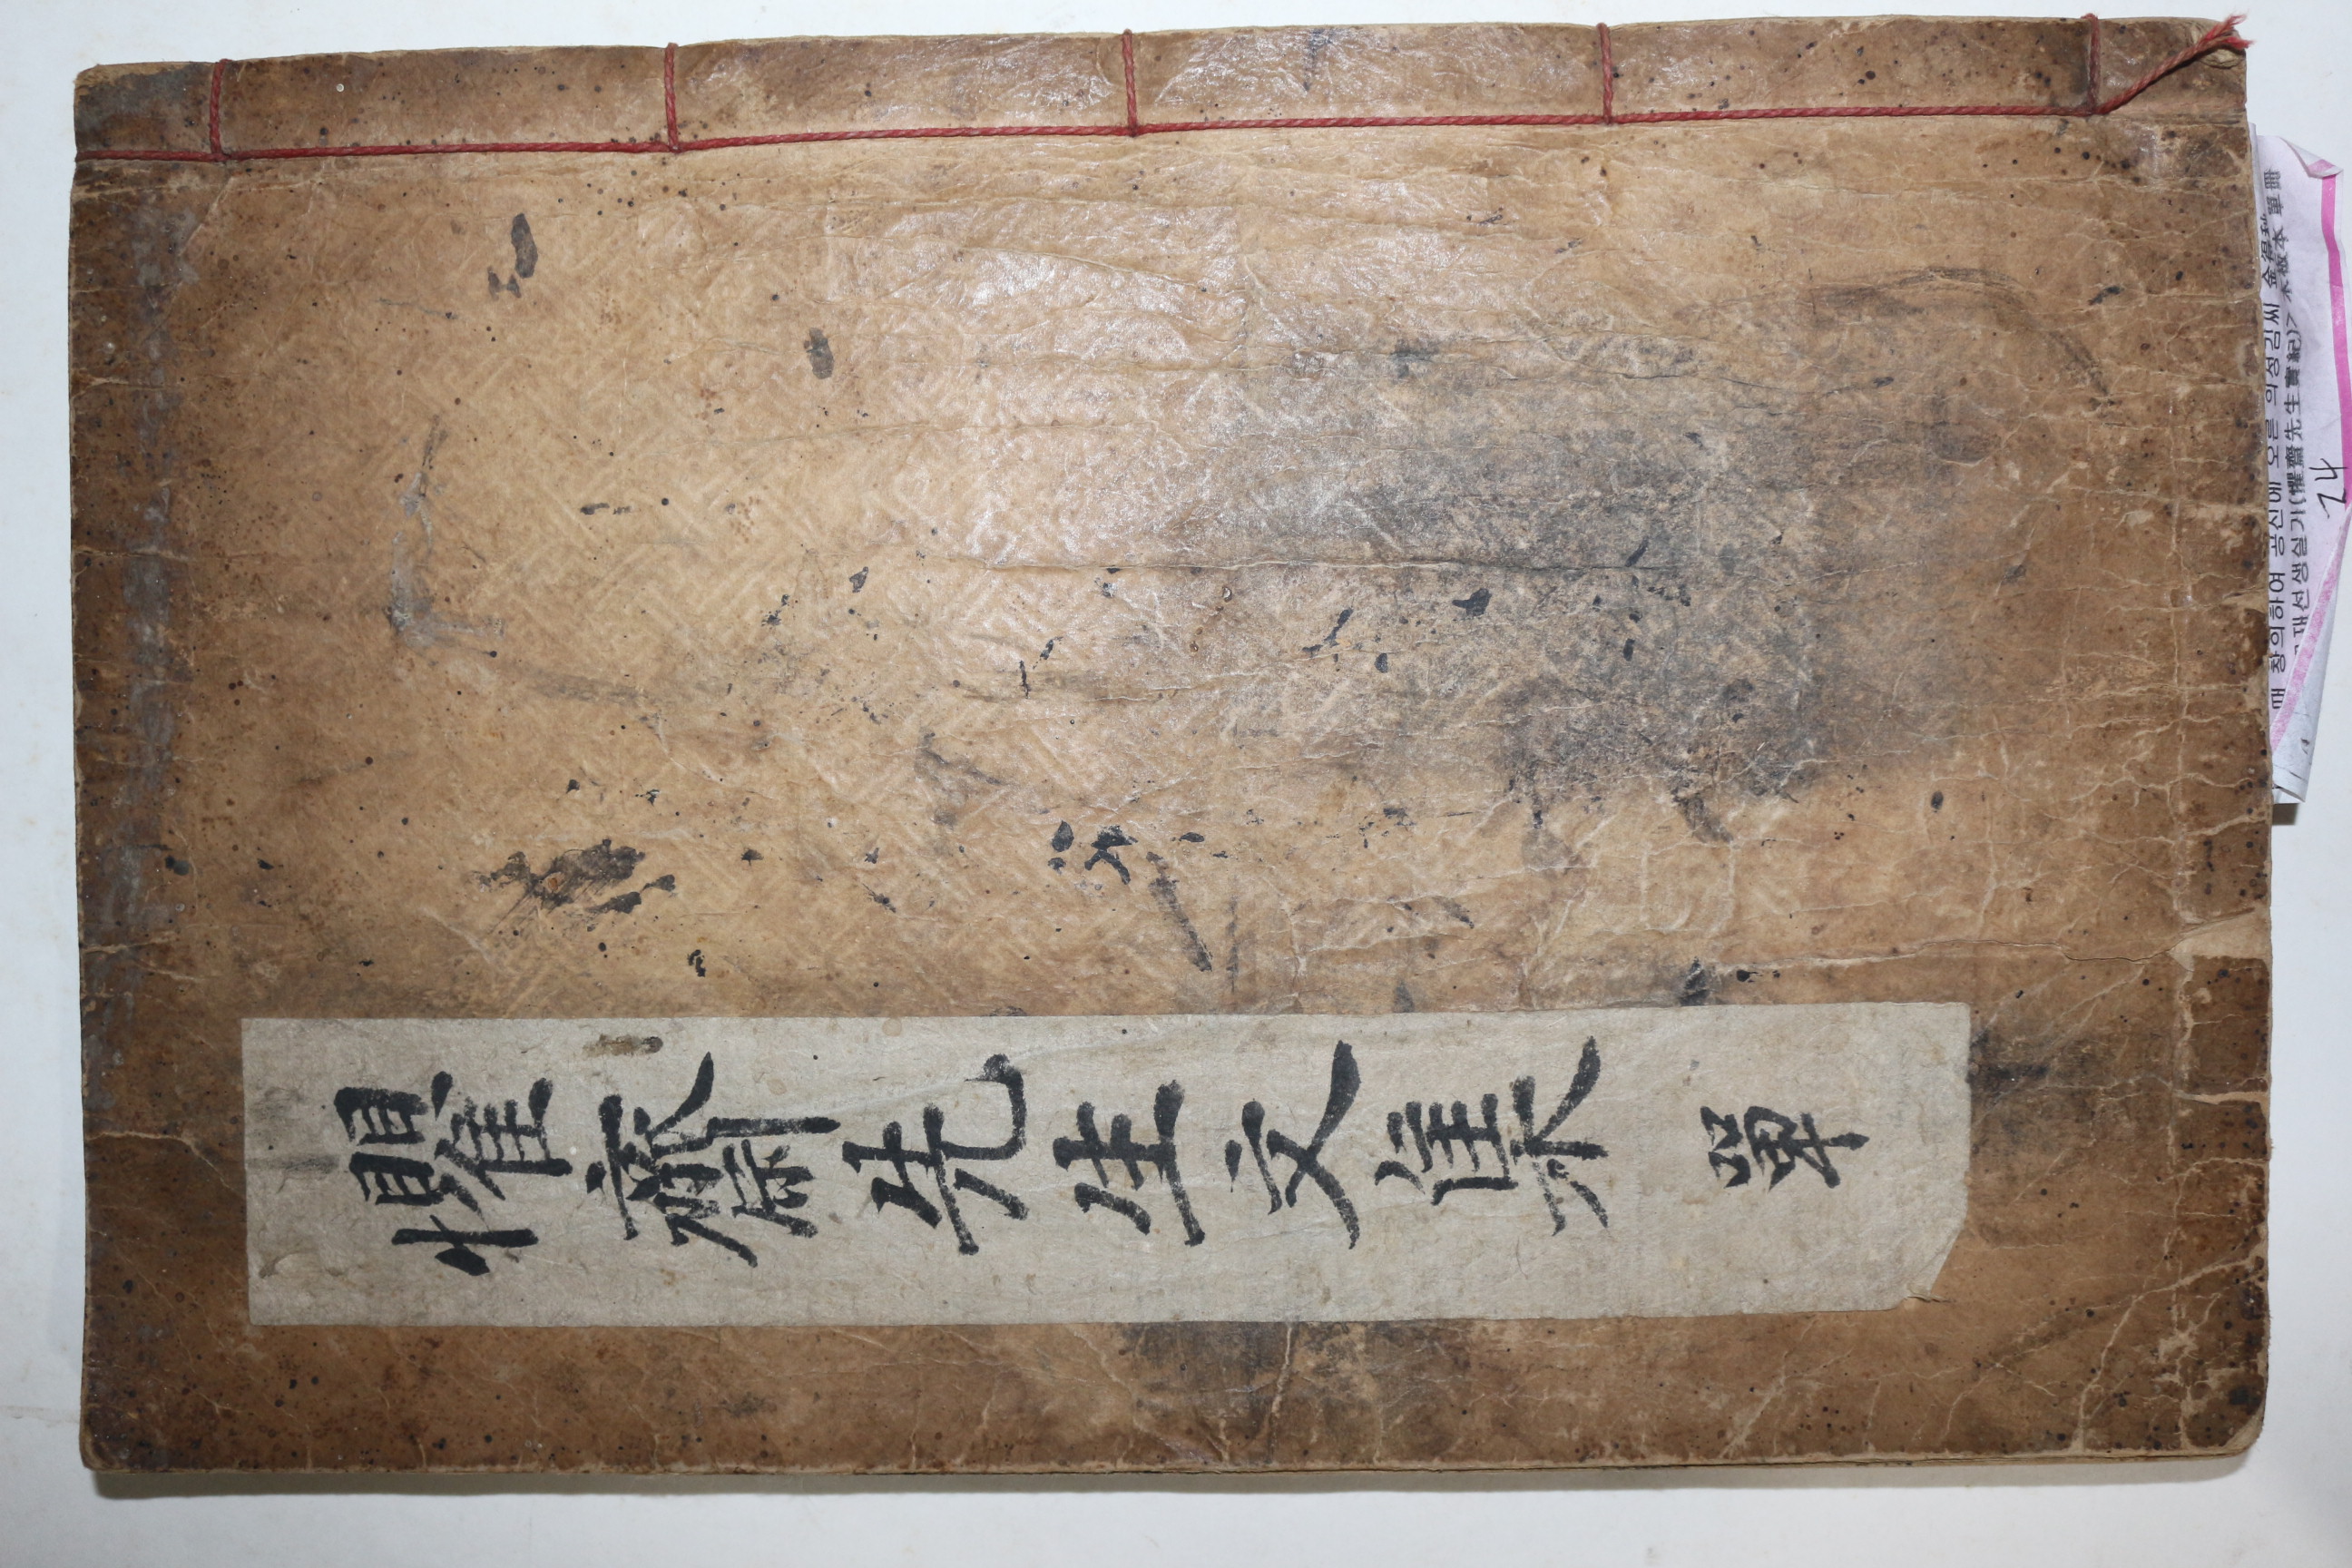 懼齋先生文集 單
때 창의하여 공신에 오른 의성김씨 金得秋
재선생실기(懼齋先生實紀)> 木板本 單冊
24